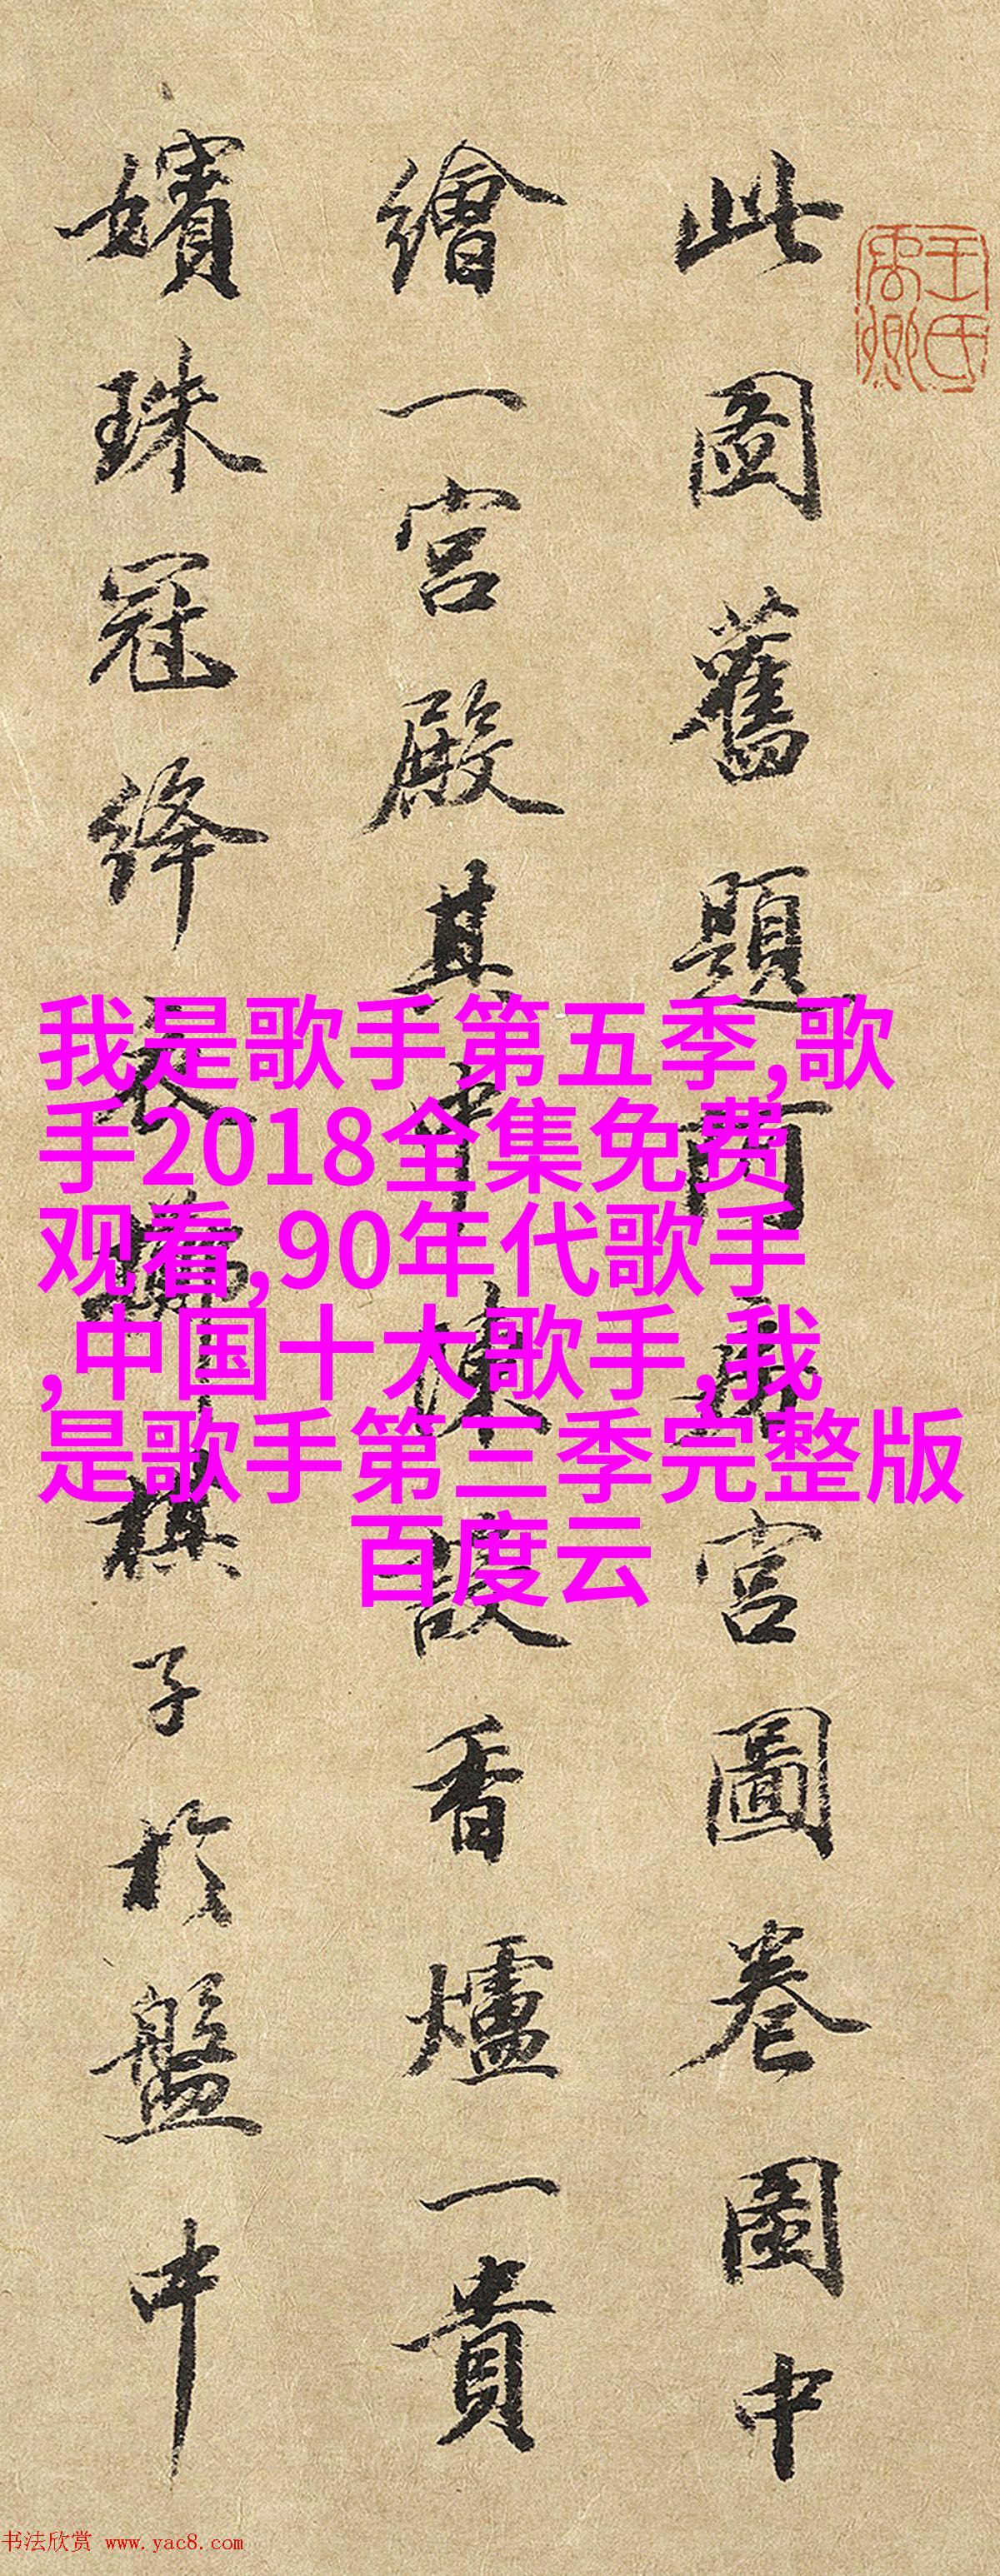 王氏禹卿
此圖舊題宮圖卷圖中
繪一宮殿其中陳設香爐一貴
嬪珠冠絳衣棋子於盤中
我是歌手第五季,歌
手2018全集免费
观看,90年代歌手
,中国十大歌手,我
是歌手第三季完整版
百度云
书法欣赏 www.yac8.com